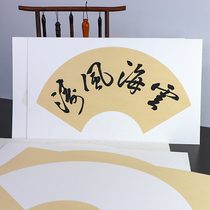 雲海風濤